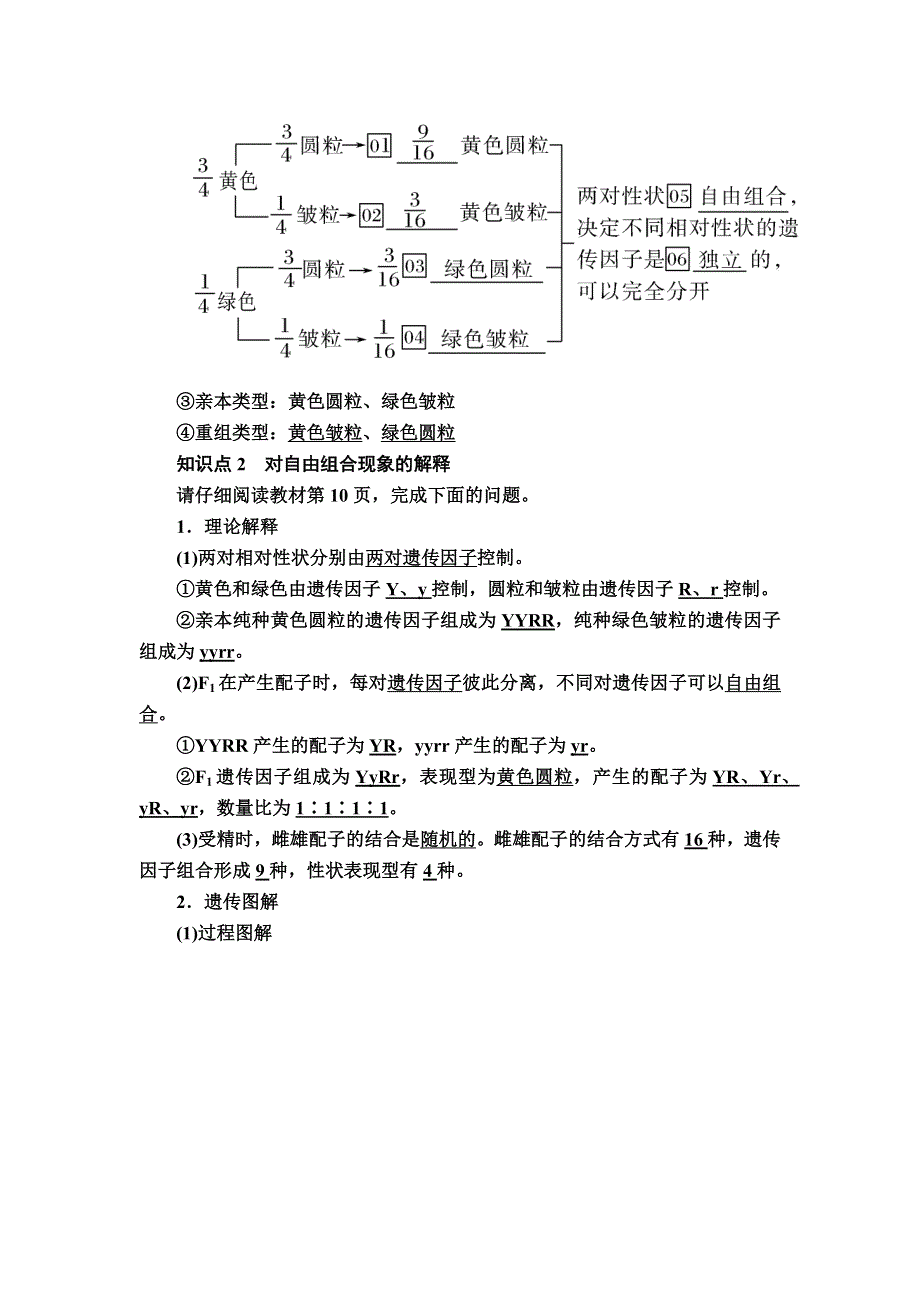 3/4 黄色
3/4 圆粒→01 9/16 黄色圆粒
1/4 皱粒→02 3/16 黄色皱粒
1/4 绿色
3/4 圆粒→3/16 03 绿色圆粒
1/4 皱粒→1/16 04 绿色皱粒
两对性状05 自由组合,
决定不同相对性状的遗
传因子是06 独立 的,
可以完全分开
③亲本类型：黄色圆粒、绿色皱粒
④重组类型：黄色皱粒、绿色圆粒
知识点2 对自由组合现象的解释
请仔细阅读教材第10页，完成下面的问题。
1．理论解释
(1)两对相对性状分别由两对遗传因子控制。
①黄色和绿色由遗传因子Y、y控制，圆粒和皱粒由遗传因子R、r控制。
②亲本纯种黄色圆粒的遗传因子组成为YYRR，纯种绿色皱粒的遗传因子
组成为yyrr。
(2)F₁在产生配子时，每对遗传因子彼此分离，不同对遗传因子可以自由组
合。
①YYRR产生的配子为YR，yyrr产生的配子为yr。
②F₁遗传因子组成为YyRr，表现型为黄色圆粒，产生的配子为YR、Yr、
yR、yr，数量比为1∶1∶1∶1。
(3)受精时，雌雄配子的结合是随机的。雌雄配子的结合方式有16种，遗传
因子组合形成9种，性状表现型有4种。
2．遗传图解
(1)过程图解